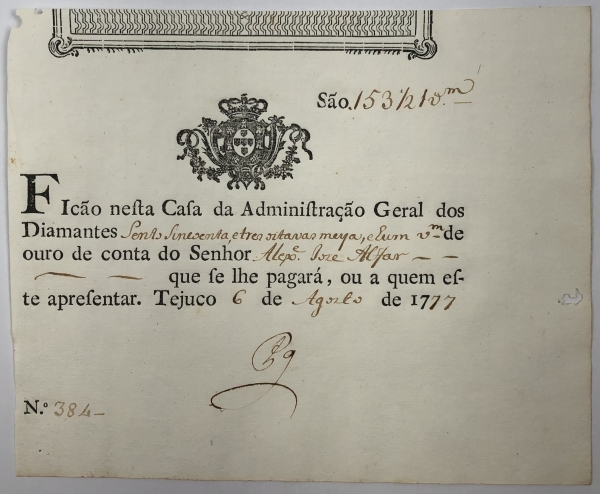 São. 153 1/2 1 v.m
Ficão neſta Caſa da Adminiſtração Geral dos
Diamantes Sento Sincoenta, e tres oitavas meya, e hum v.m de
ouro de conta do Senhor Joze
que ſe lhe pagará, ou a quem eſ-
te apreſentar. Tejuco 6 de Agosto de 1777
N.º 384